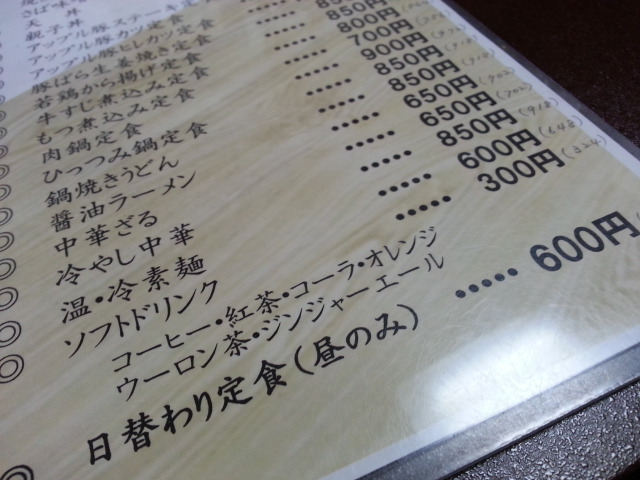 さば味噌
天丼
親子丼
アップル豚ステーキ定
アップル豚カツ定食
アップル豚ヒレカツ定食
豚ばら生姜焼き定食
◎ 若鶏から揚げ定食 850円
◎ 牛すじ煮込み定食 850円
◎ もつ煮込み定食 ••••• 800円
◎ 肉鍋定食 ••••• 700円
◎ ひっつみ鍋定食 ••••• 900円
◎ 鍋焼きうどん ••••• 850円
◎ 醤油ラーメン ••••• 650円(702)
◎ 中華ざる ••••• 650円(702)
◎ 冷やし中華 ••••• 850円(918)
◎ 温・冷素麺 ••••• 600円(648)
◎ ソフトドリンク ••••• 300円(324)
コーヒー・紅茶・コーラ・オレンジ
ウーロン茶・ジンジャーエール
◎ 日替わり定食(昼のみ) ••••• 600円